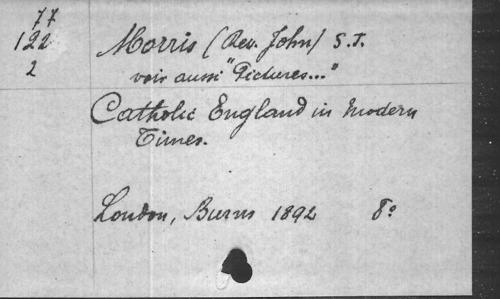 77
122
2
Morris (Rev. John) S.J.
voir aussi "Pictures..."
Catholic England in Modern
Times.
London, Burns 1892 8°